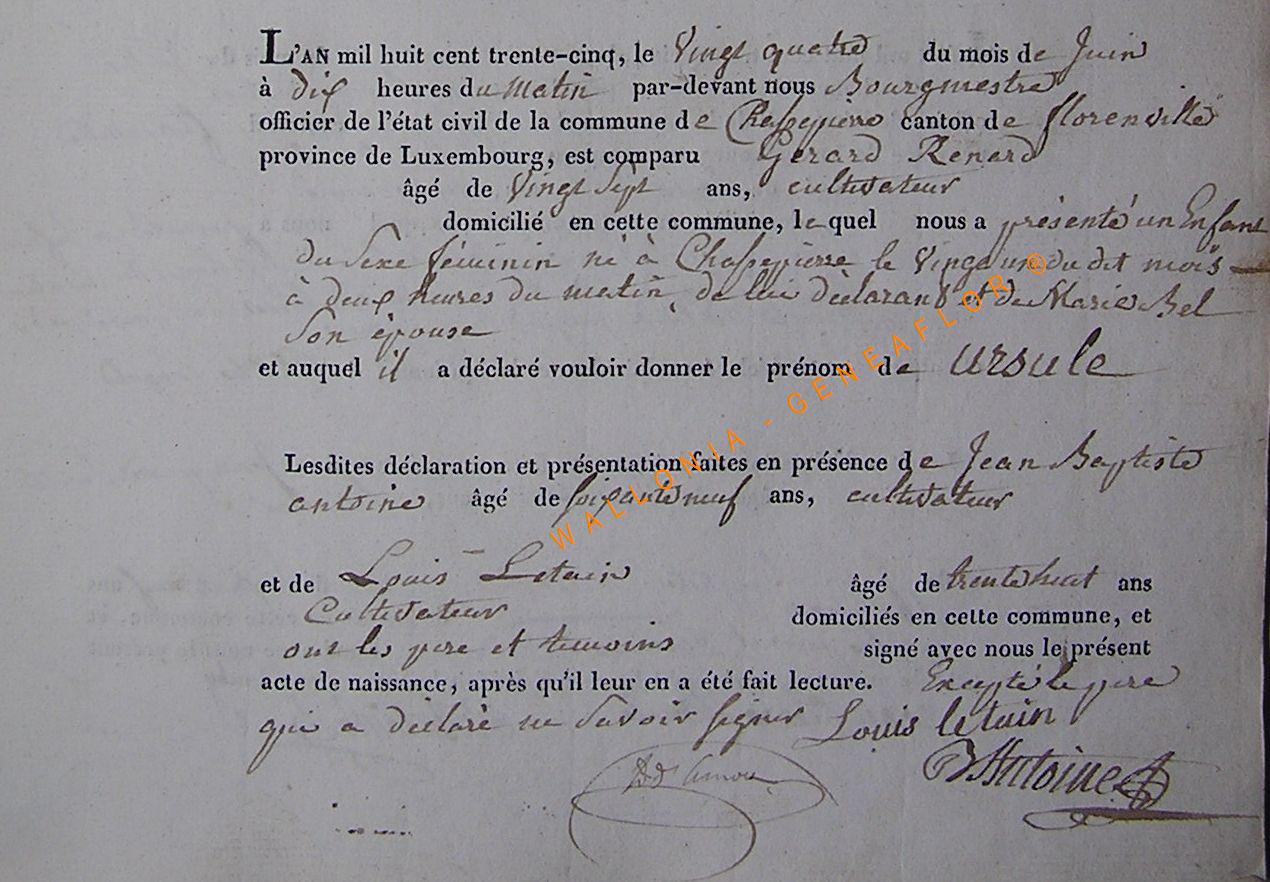 L'AN mil huit cent trente-cinq, le Vingt quatre du mois de Juin
à dix heures du Matin par-devant nous Bourgmestre
officier de l'état civil de la commune de Chassepierre canton de florenville
province de Luxembourg, est comparu Gerard Renard
âgé de Vingt Sept ans, cultivateur
domicilié en cette commune, le quel nous a présenté un Enfant
du Sexe féminin né à Chassepierre le Vingt un du dit mois
à deux heures du matin, de lui déclarant et de Marie Bel
Son épouse
et auquel il a déclaré vouloir donner le prénom de Ursule
Lesdites déclaration et présentation faites en présence de Jean Baptiste
antoine âgé de soixante neuf ans, cultivateur
et de Louis Letuin âgé de trente huit ans
Cultivateur domiciliés en cette commune, et
ont les pere et temoins signé avec nous le présent
acte de naissance, après qu'il leur en a été fait lecture. Excepté le pere
qui a déclaré ne Savoir signer Louis letuin
Antoine
WALLONIA - GENEAFLOR ®